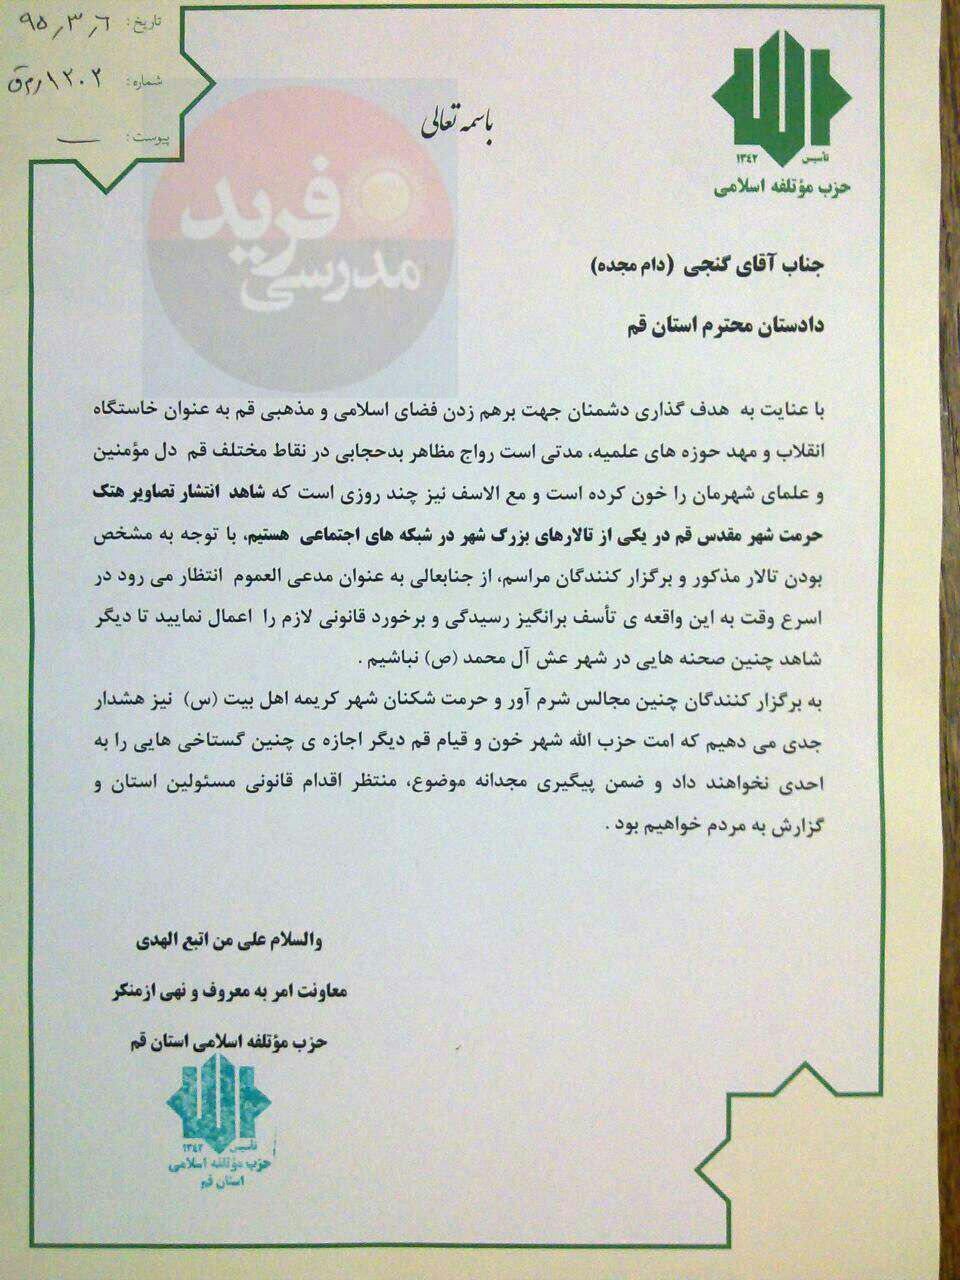 تاریخ: ۹۵٫۳٫۶
شماره: ۱۲۰۲٫م‌ق
پیوست: ــ
باسمه تعالی
تأسیس ۱۳۴۲
حزب مؤتلفه اسلامی
فرید
مدرسی
جناب آقای گنجی (دام مجده)
دادستان محترم استان قم
با عنایت به هدف گذاری دشمنان جهت برهم زدن فضای اسلامی و مذهبی قم به عنوان خاستگاه
انقلاب و مهد حوزه های علمیه، مدتی است رواج مظاهر بدحجابی در نقاط مختلف قم دل مؤمنین
و علمای شهرمان را خون کرده است و مع الاسف نیز چند روزی است که شاهد انتشار تصاویر هتک
حرمت شهر مقدس قم در یکی از تالارهای بزرگ شهر در شبکه های اجتماعی هستیم، با توجه به مشخص
بودن تالار مذکور و برگزار کنندگان مراسم، از جنابعالی به عنوان مدعی العموم انتظار می رود در
اسرع وقت به این واقعه ی تأسف برانگیز رسیدگی و برخورد قانونی لازم را اعمال نمایید تا دیگر
شاهد چنین صحنه هایی در شهر عش آل محمد (ص) نباشیم .
به برگزار کنندگان چنین مجالس شرم آور و حرمت شکنان شهر کریمه اهل بیت (س) نیز هشدار
جدی می دهیم که امت حزب الله شهر خون و قیام قم دیگر اجازه ی چنین گستاخی هایی را به
احدی نخواهند داد و ضمن پیگیری مجدانه موضوع، منتظر اقدام قانونی مسئولین استان و
گزارش به مردم خواهیم بود .
والسلام علی من اتبع الهدی
معاونت امر به معروف و نهی ازمنکر
حزب مؤتلفه اسلامی استان قم
تأسیس ۱۳۴۲
حزب مؤتلفه اسلامی
استان قم